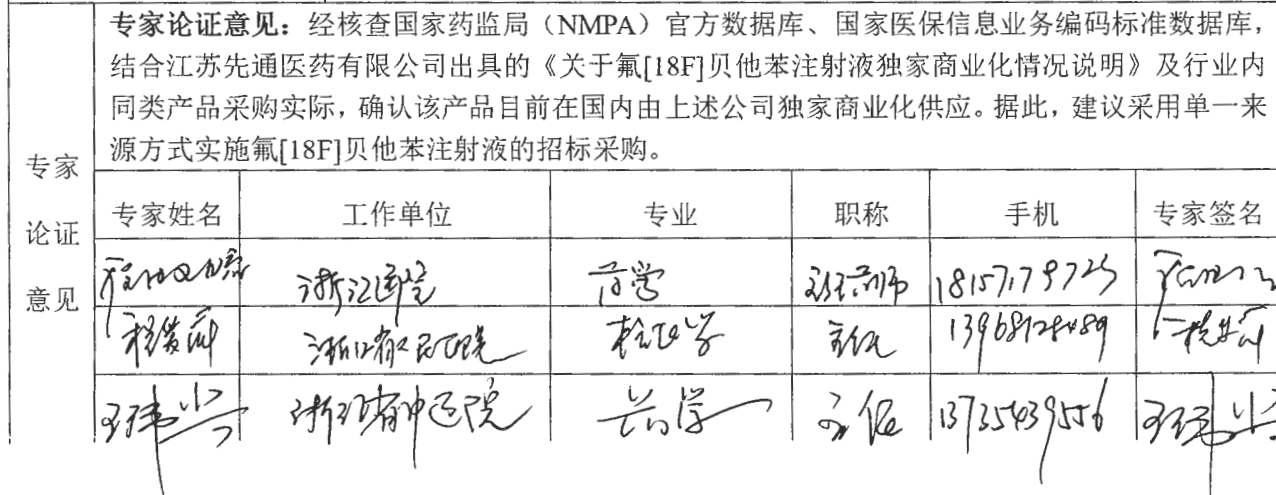 专家论证意见：经核查国家药监局（NMPA）官方数据库、国家医保信息业务编码标准数据库，
结合江苏先通医药有限公司出具的《关于氟[18F]贝他苯注射液独家商业化情况说明》及行业内
同类产品采购实际，确认该产品目前在国内由上述公司独家商业化供应。据此，建议采用单一来
源方式实施氟[18F]贝他苯注射液的招标采购。
专家
论证
意见
专家姓名 工作单位 专业 职称 手机 专家签名
浙江医院 药学 主任药师 18157179723
浙江省人民医院 主任 13968128489
浙江省中医院 药学 主任 13735439556